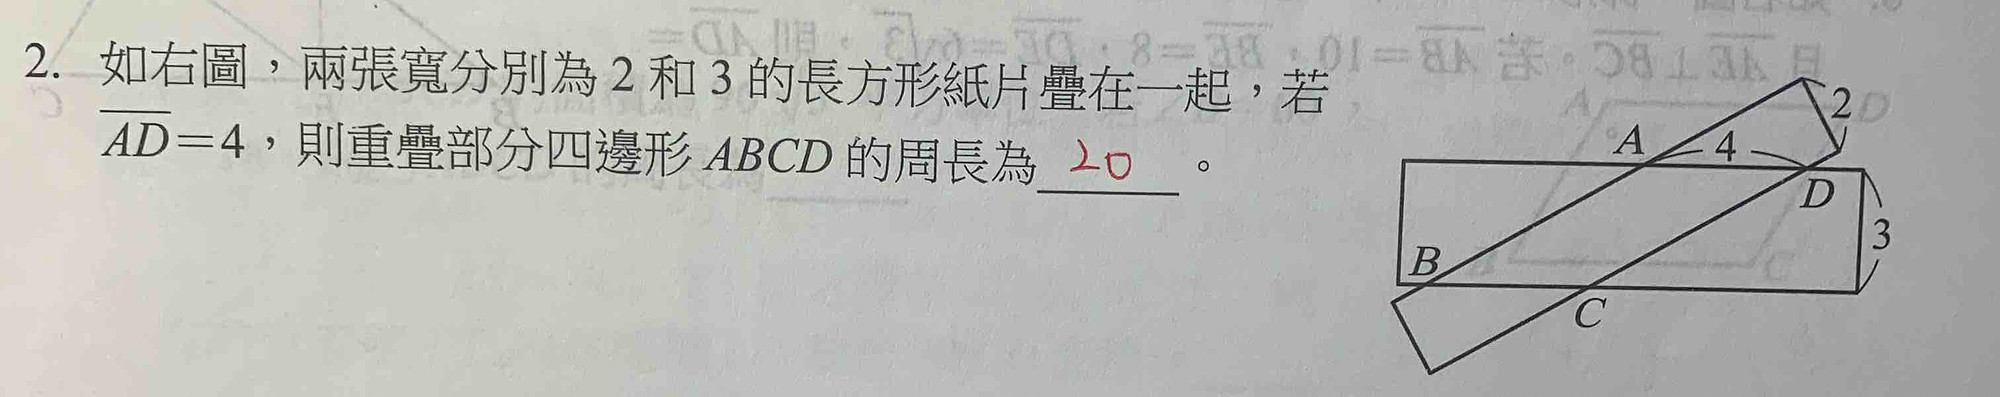 2. 如右圖，兩張寬分別為 2 和 3 的長方形紙片疊在一起，若
AD=4，則重疊部分四邊形 ABCD 的周長為 20 。
2
A 4
D
3
B
C